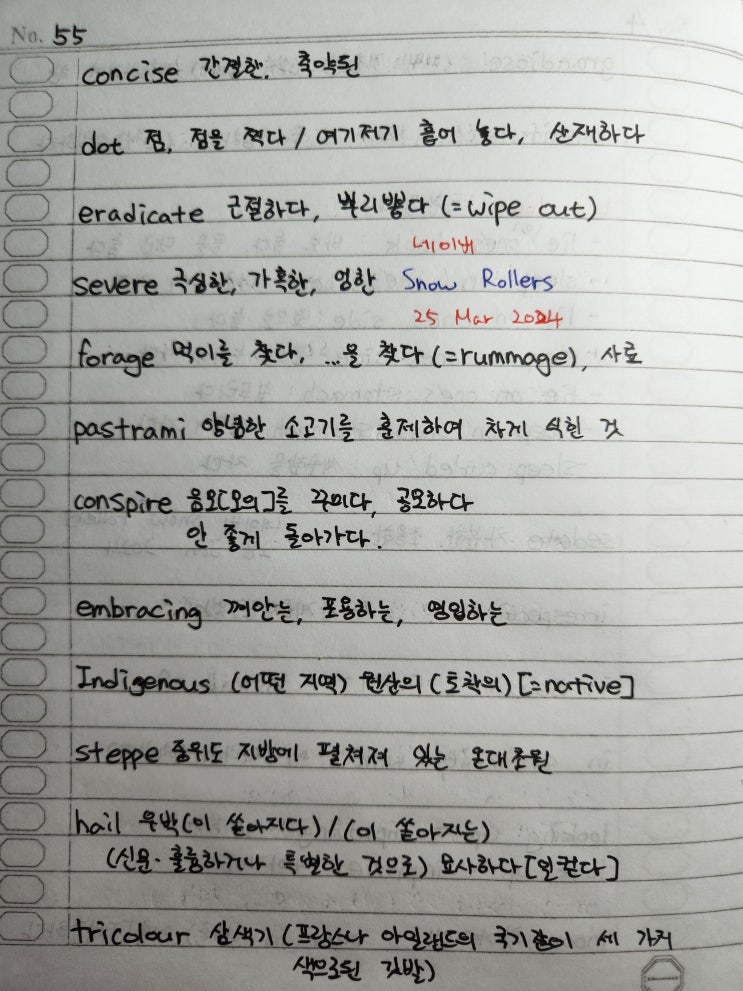 No. 55
concise 간결한, 축약된
dot 점, 점을 찍다 / 여기저기 흩어 놓다, 산재하다
eradicate 근절하다, 뿌리뽑다 (=wipe out)
네이버
severe 극심한, 가혹한, 엄한 Snow Rollers
25 Mar 2024
forage 먹이를 찾다, ...을 찾다 (=rummage), 사료
pastrami 양념한 소고기를 훈제하여 차게 식힌 것
conspire 음모[모의]를 꾸미다, 공모하다
안 좋게 돌아가다.
embracing 껴안는, 포용하는, 영입하는
Indigenous (어떤 지역) 원산의 (토착의) [=native]
steppe 중위도 지방에 펼쳐져 있는 온대초원
hail 우박(이 쏟아지다) / (이 쏟아지는)
(신문·훌륭하거나 특별한 것으로) 묘사하다 [일컫다]
tricolour 삼색기 (프랑스나 아일랜드의 국기같이 세 가지
색으로된 깃발)